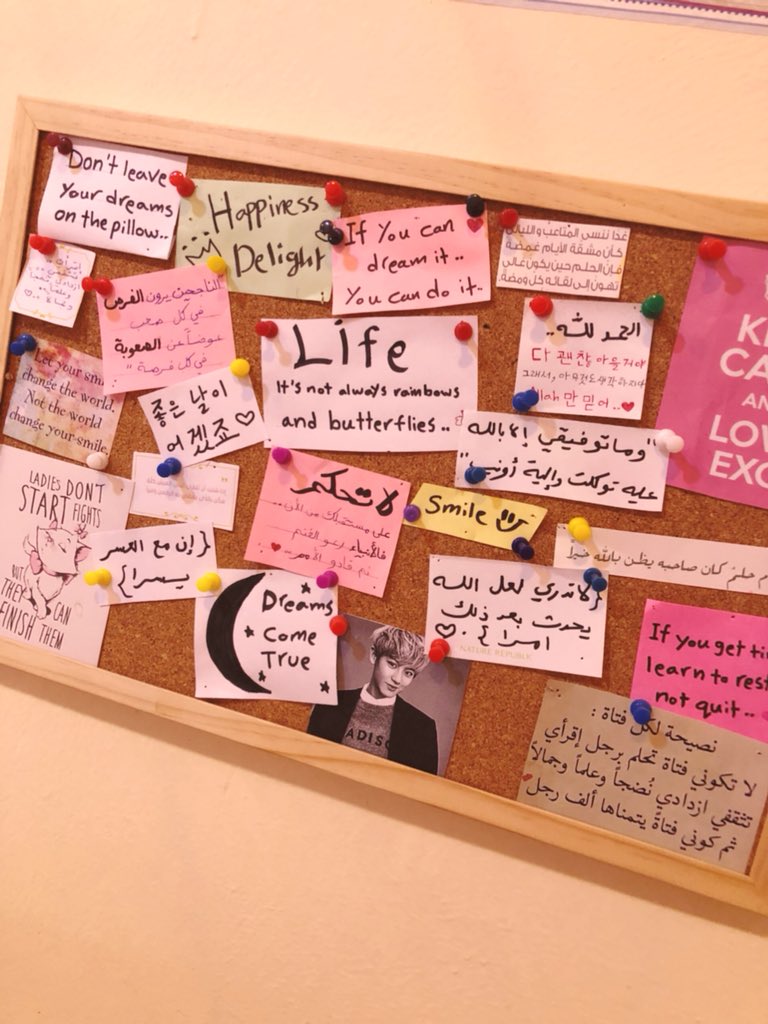 Don't leave
your dreams
on the pillow..
Happiness
Delight
If You can
dream it..
You can do it..
غدا ننسى المتاعب والليالي
كأن مشقة الأيام غمضة
فإن الحلم حين يكون غالي
تهون إلى لقائه كل ومضة
الناجحين يرون الفرص
في كل صعب
عوضاً عن الصعوبة
في كل فرصة"
Life
It's not always rainbows
and butterflies..
الحمد لله..
다 괜찮아 을 거야
그래서, 아무것도 생각하지마
Allah 만 믿어..
KE
CA
AN
LOV
EXO
Let your smi
change the world.
Not the world
change your smile
좋은 날이
어겠죠
"وما توفيقي إلا بالله
عليه توكلت وإليه أونيب"
LADIES DON'T
START FIGHTS
BUT
THEY CAN
FINISH THEM
لا تحكم
على مستقبلك من الآن..
فالأنبياء رعو الغنم
ثم قادو الأمم..
Smile
{إن مع العسر
يسرا}
م حلم كان صاحبه يظن بالله خيرا
Dreams
Come
True
{لا تدري لعل الله
يحدث بعد ذلك
امرا}.
NATURE REPUBLIC
ADISO
If you get ti
learn to rest
not quit..
نصيحة لكل فتاة :
لا تكوني فتاة تحلم برجل إقرأي
تثقفي ازدادي نُضجاً وعلماً وجمالاً
ثم كوني فتاةً يتمناها ألف رجل